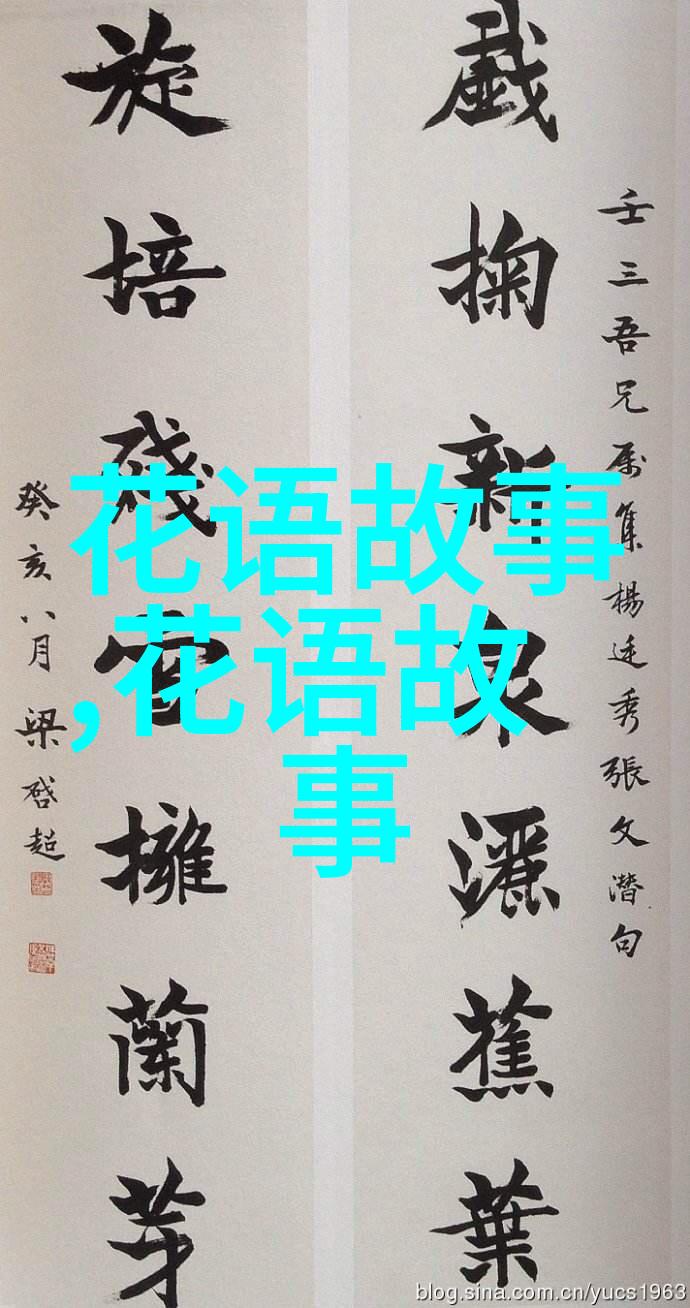 壬三吾兄属集楊廷秀張文潛句
戲掬新泉灑蕉葉
旋培殘雪擁蘭芽
癸亥八月梁啓超
花语故事
,花语故
事
blog.sina.com.cn/yucs1963